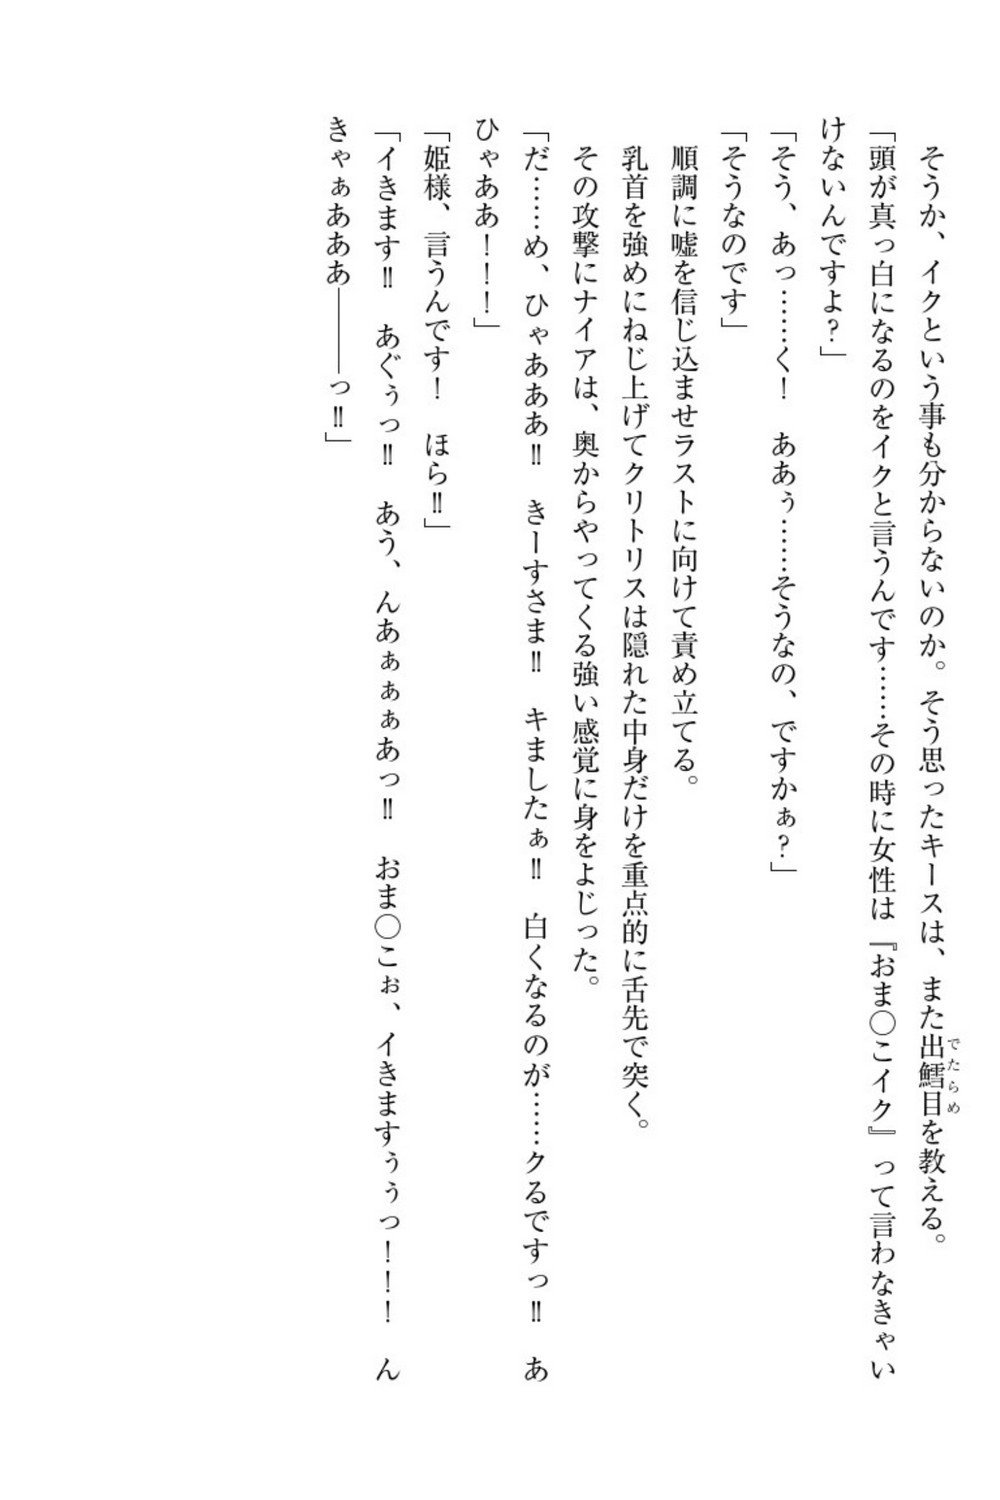 そうか、イクという事も分からないのか。そう思ったキースは、また出鱈目を教える。
でたらめ
「頭が真っ白になるのをイクと言うんです……その時に女性は『おま〇こイク』って言わなきゃい
けないんですよ？」
「そう、あっ……く！　ああぅ……そうなの、ですかぁ？」
「そうなのです」
順調に嘘を信じ込ませラストに向けて責め立てる。
乳首を強めにねじ上げてクリトリスは隠れた中身だけを重点的に舌先で突く。
その攻撃にナイアは、奥からやってくる強い感覚に身をよじった。
「だ……め、ひゃあああ‼　きーすさま‼　キましたぁ‼　白くなるのが……クるですっ‼　あ
ひゃああ！！！」
「姫様、言うんです！　ほら‼」
「イきます‼　あぐぅっ‼　あう、んあぁぁぁあっ‼　おま〇こぉ、イきますぅぅっ！！！　ん
きゃぁあああ――――っ‼」